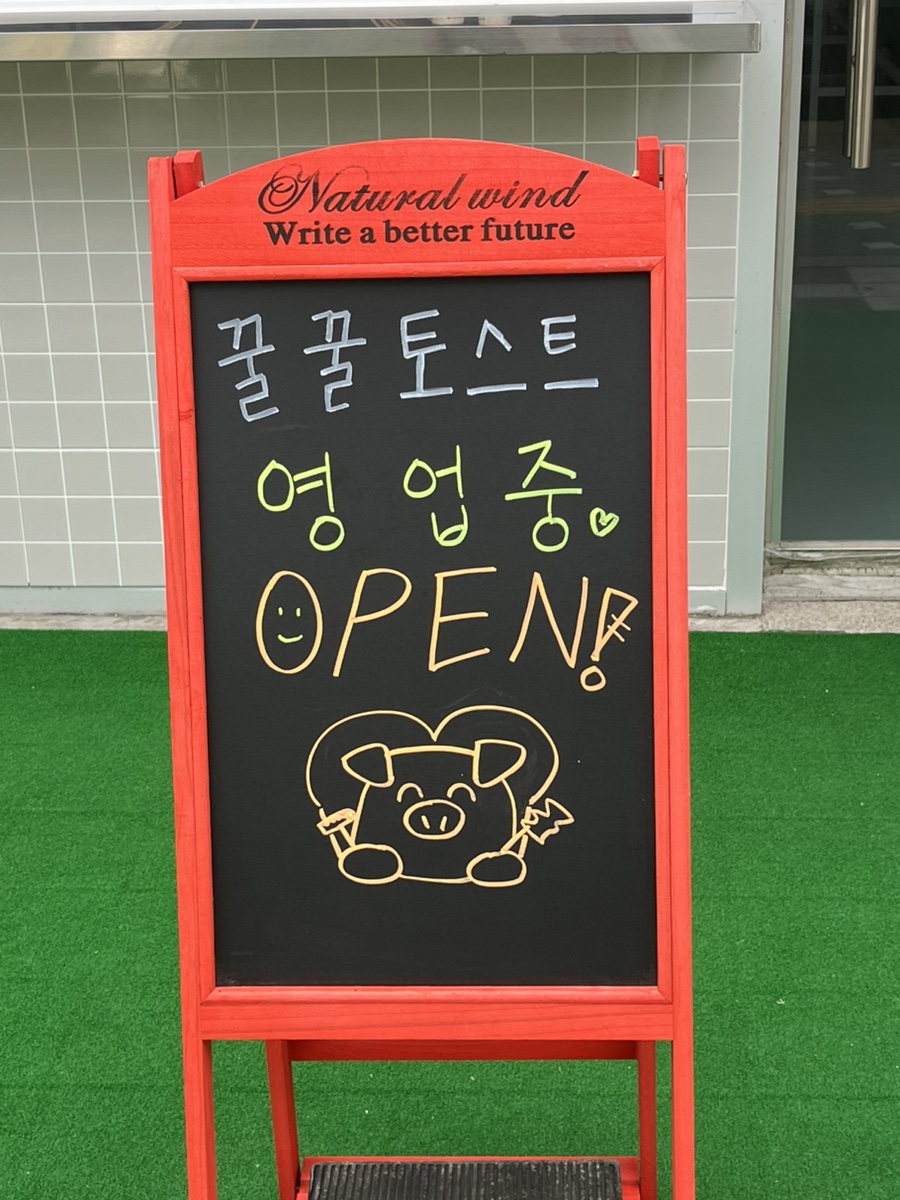 Natural wind
Write a better future
꿀꿀토스트
영업중
OPEN!